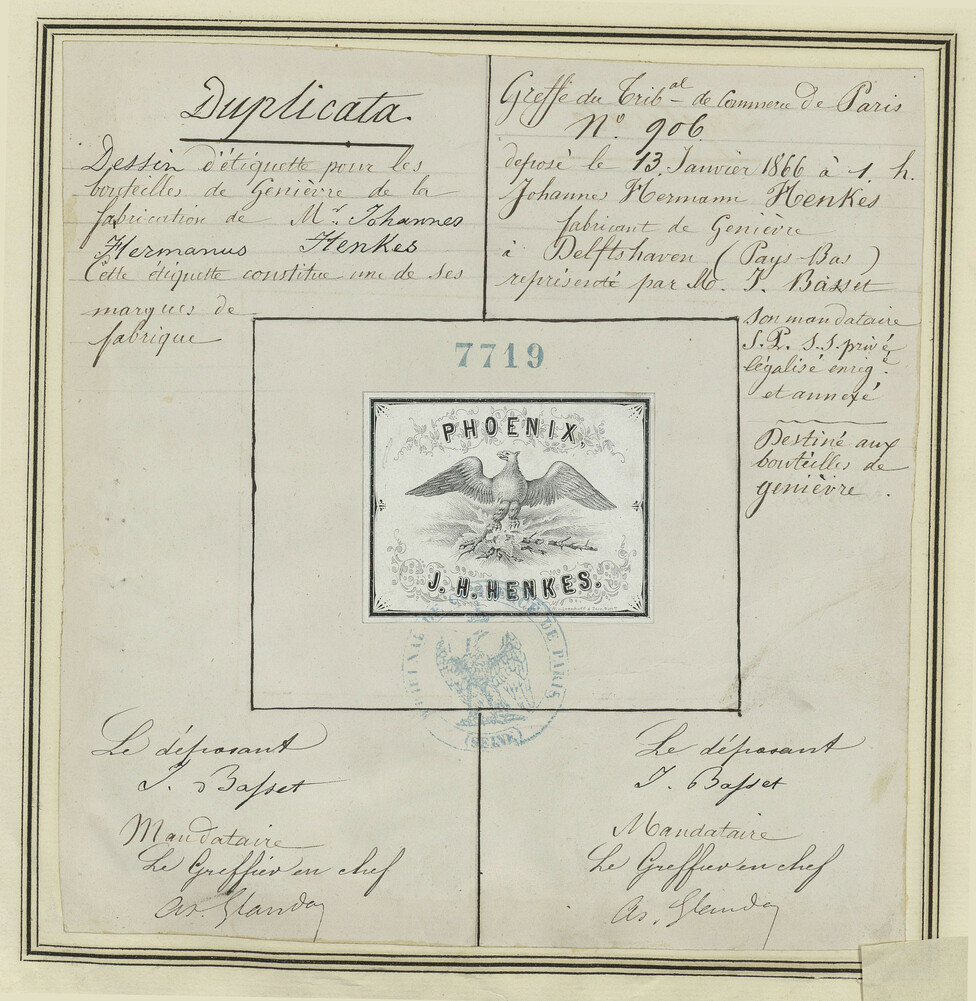 Duplicata
Dessin d'étiquette pour les
bouteilles de Genièvre de la
fabrication de Mr. Johannes
Hermanus Henkes
Cette étiquette constitue une de ses
marques de
fabrique
Greffe du Tribal de Commerce de Paris
No. 906
deposé le 13 Janvier 1866 à 1. h.
Johannes Hermann Henkes
fabricant de Genièvre
à Delftshaven (Pays-Bas)
représenté par M. J. Basset
son mandataire
S.P. S.S. privé
légalisé enregé.
et annexé
Destiné aux
bouteilles de
genièvre.
7719
PHOENIX,
J. H. HENKES.
TRIBUNAL DE COMMERCE DE PARIS
(SEINE)
Le déposant
J. Basset
Mandataire
Le Greffier en chef
Le déposant
J. Basset
Mandataire
Le Greffier en chef